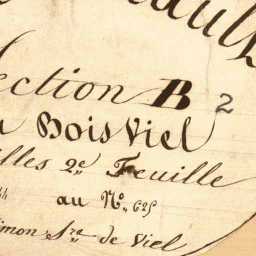 ection B 2
Bois Viel
lles 2e Feuille
au No. 625
imon Sre de Viel